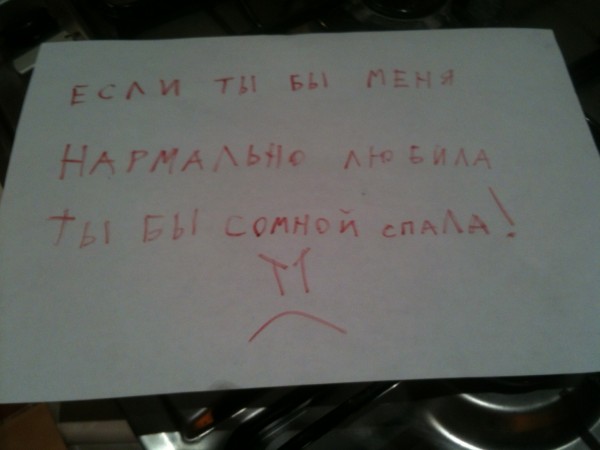 ЕСЛИ ТЫ БЫ МЕНЯ
НАРМАЛЬНО ЛЮБИЛА
ТЫ БЫ СОМНОЙ СПАЛА!